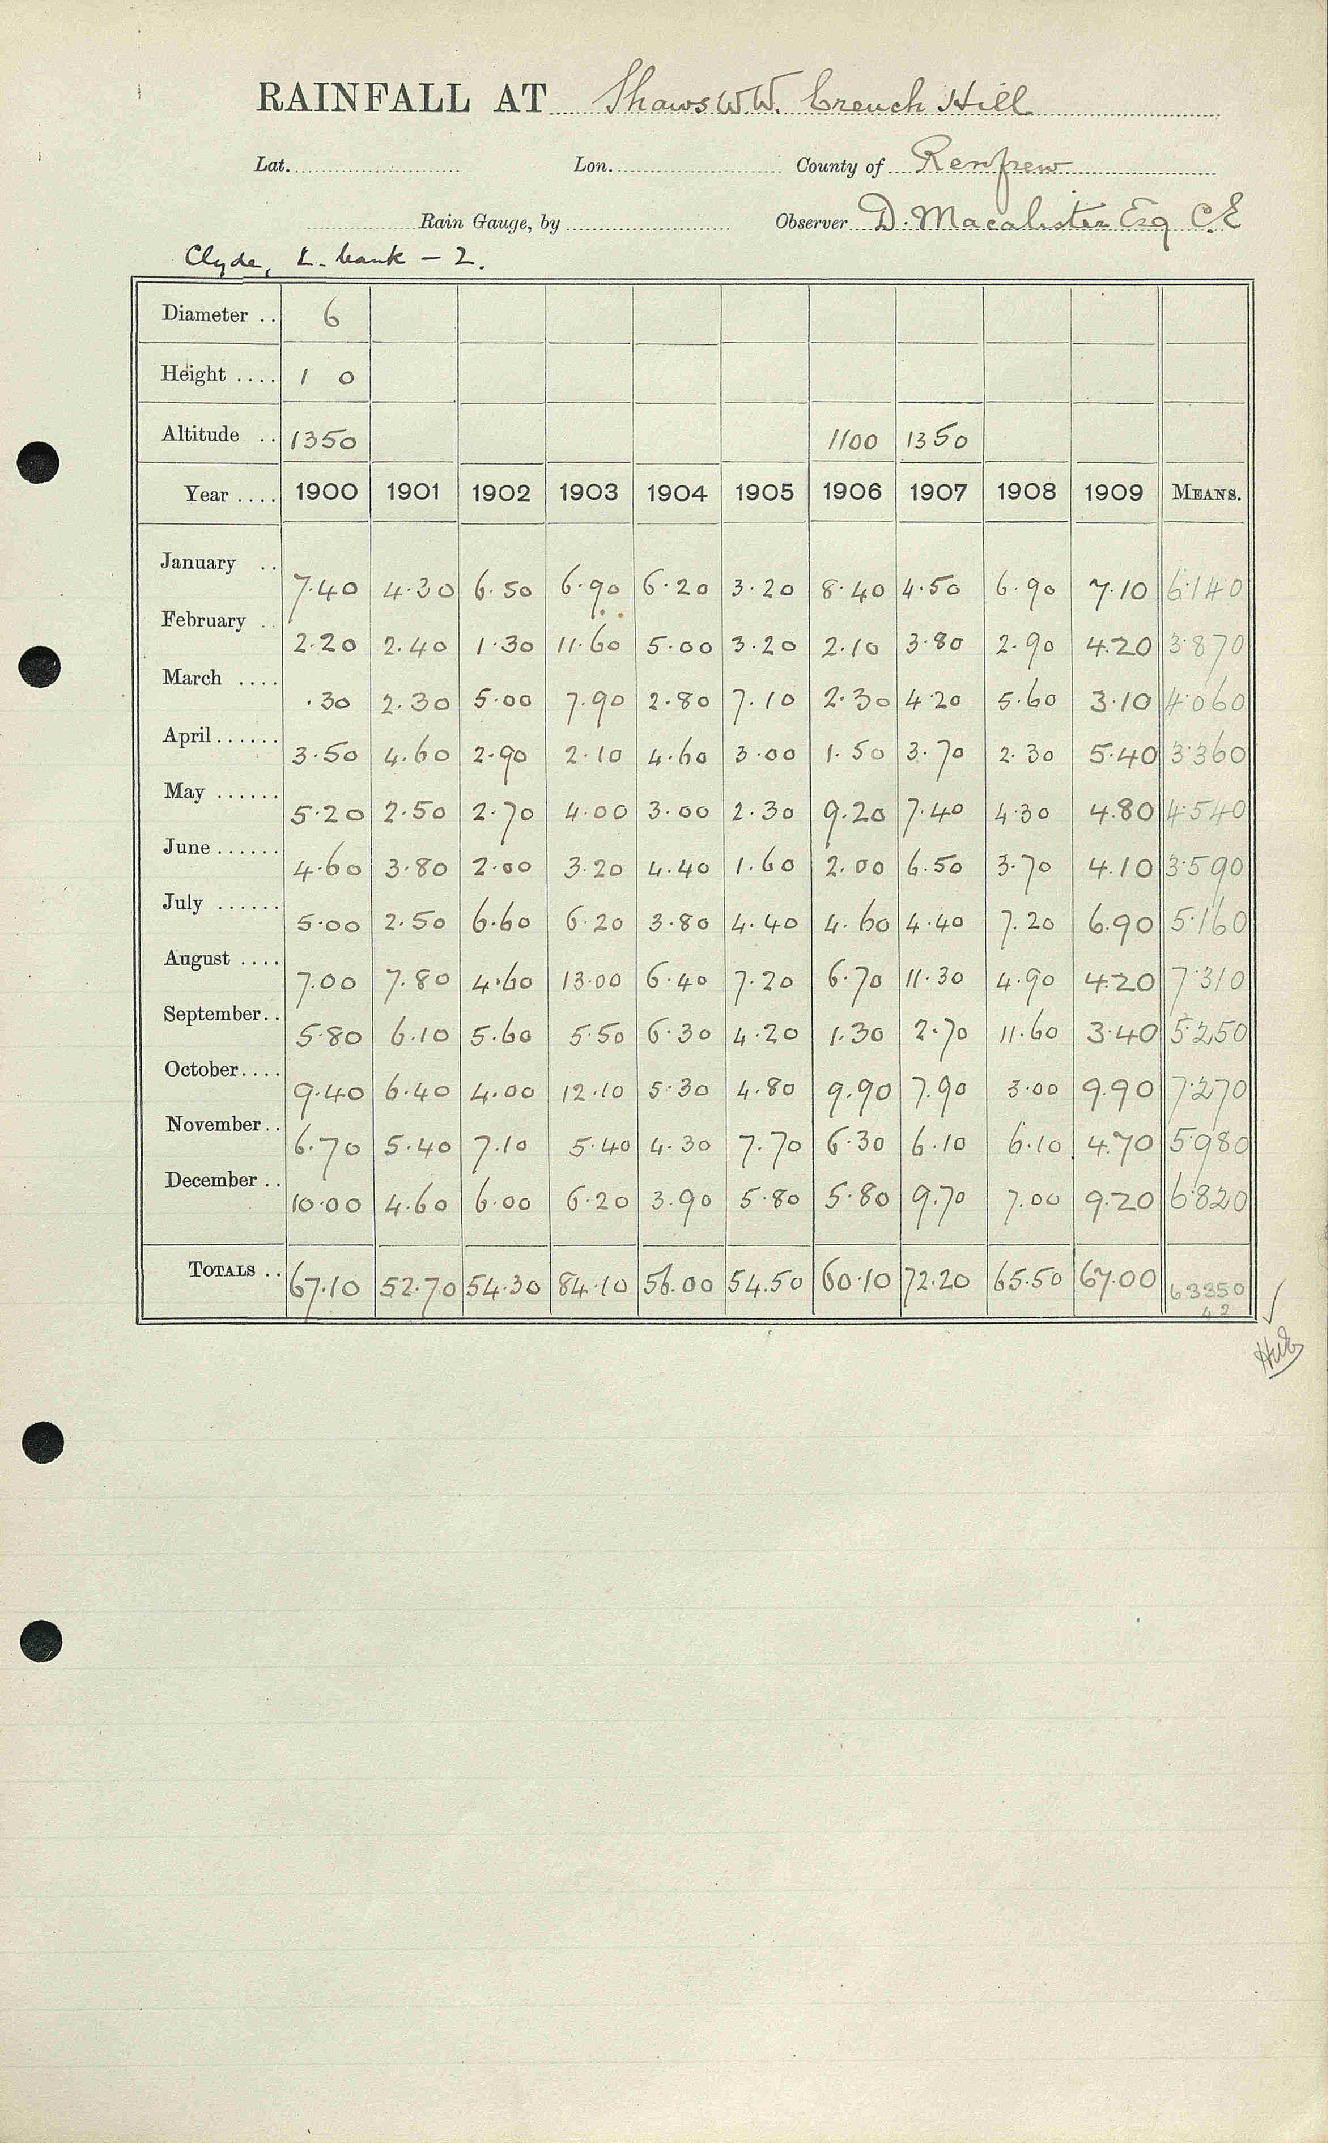 RAINFALL AT Shaws W.W. Creuch Hill
Lat. Lon. County of Renfrew
Rain Gauge, by Observer D. Macalister Esq C.E
Clyde, L. bank – 2.
Diameter .. 6
Height .... 1 0
Altitude .. 1350 1100 1350
Year .... 1900 1901 1902 1903 1904 1905 1906 1907 1908 1909 MEANS.
January .. 7.40 4.30 6.50 6.90 6.20 3.20 8.40 4.50 6.90 7.10 6.140
February .. 2.20 2.40 1.30 11.60 5.00 3.20 2.10 3.80 2.90 4.20 3.870
March .... .30 2.30 5.00 7.90 2.80 7.10 2.30 4.20 5.60 3.10 4.060
April...... 3.50 4.60 2.90 2.10 4.60 3.00 1.50 3.70 2.30 5.40 3.360
May ...... 5.20 2.50 2.70 4.00 3.00 2.30 9.20 7.40 4.30 4.80 4.540
June...... 4.60 3.80 2.00 3.20 4.40 1.60 2.00 6.50 3.70 4.10 3.590
July ...... 5.00 2.50 6.60 6.20 3.80 4.40 4.60 4.40 7.20 6.90 5.160
August .... 7.00 7.80 4.60 13.00 6.40 7.20 6.70 11.30 4.90 4.20 7.310
September.. 5.80 6.10 5.60 5.50 6.30 4.20 1.30 2.70 11.60 3.40 5.250
October.... 9.40 6.40 4.00 12.10 5.30 4.80 9.90 7.90 3.00 9.90 7.270
November.. 6.70 5.40 7.10 5.40 4.30 7.70 6.30 6.10 6.10 4.70 5.980
December .. 10.00 4.60 6.00 6.20 3.90 5.80 5.80 9.70 7.00 9.20 6.820
TOTALS .. 67.10 52.70 54.30 84.10 56.00 54.50 60.10 72.20 65.50 67.00 63350
42